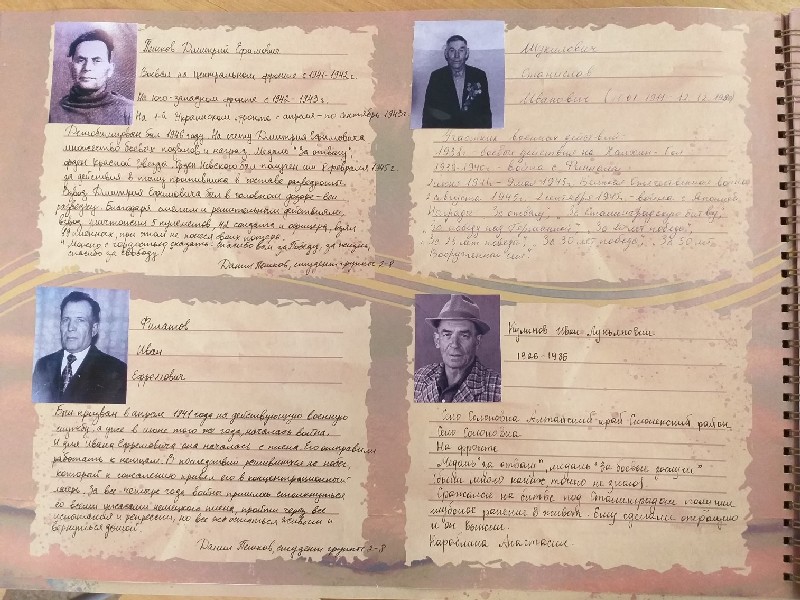 Пешков Дмитрий Ефимович
Воевал на Центральном фронте с 1941-1942 г.
На юго-западном фронте с 1942-1943 г.
На 1-й Украинском фронте с апреля - по октябрь 1943 г.
Демобилизован был 1946 году. На счету Дмитрия Ефимовича
множество боевых подвигов и наград. Медаль "За отвагу",
орден Красной Звезды. Орден Невского был получен им 8 февраля 1945 г.
за действия в тылу противника в составе разведроты.
Взвод Дмитрия Ефимовича был в головном дозоре
разведку. Благодаря смелым и решительным действиям,
взвод уничтожил солдата и офицера, взял
пленных, при этом не понеся своих потерь.
Можно с гордостью сказать: спасибо вам за Победу, за жизнь,
спасибо за свободу!
Данил Пешков, студент группы 2-8
Шукилович
Станислав
Иванович
Участник военных действий
1939г. боевые действия на Халхин-Гол
1939-1940. - война с Финляндией
Великая Отечественная война
2 сентября 1945 - война с Японией
Награды: "За отвагу", "За Сталинградскую битву",
"За победу над Германией", "За 20 лет победы",
"За 25 лет победы", "За 30 лет победы", "За 50 лет
Вооруженных сил".
Филатов
Иван
Ефремович
Был призван в апреле 1941 года на действующую военную
службу, а уже в июне того же года, началась война.
И для Ивана Ефремовича она началась с плена. Его отправили
работать к немцам. В последствии решившись на побег,
который к сожалению привел его в концентрационный
лагерь. За все четыре года войны пришлось столкнуться
со всеми ужасами немецкого плена, пройти через все
испытания и репрессии, но все же остаться живым и
вернуться домой.
Данил Пешков, студент группы 2-8
Иван Лукьянович
1926-1986
Село Солоновка Алтайский край Смоленский район
Село Солоновка
На фронте
"Медаль "за отвагу", медаль "За боевые заслуги"
были много каких точно не знаю).
Сражался на битве под Сталинградом получил
глубокое ранение в живот. Ему сделали операцию
и он выжил.
Анастасия.